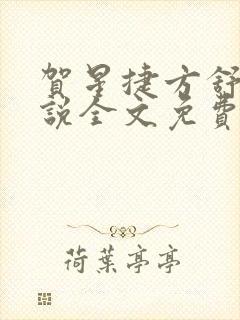 賀星捷方舒
說全文免費
荷葉亭亭